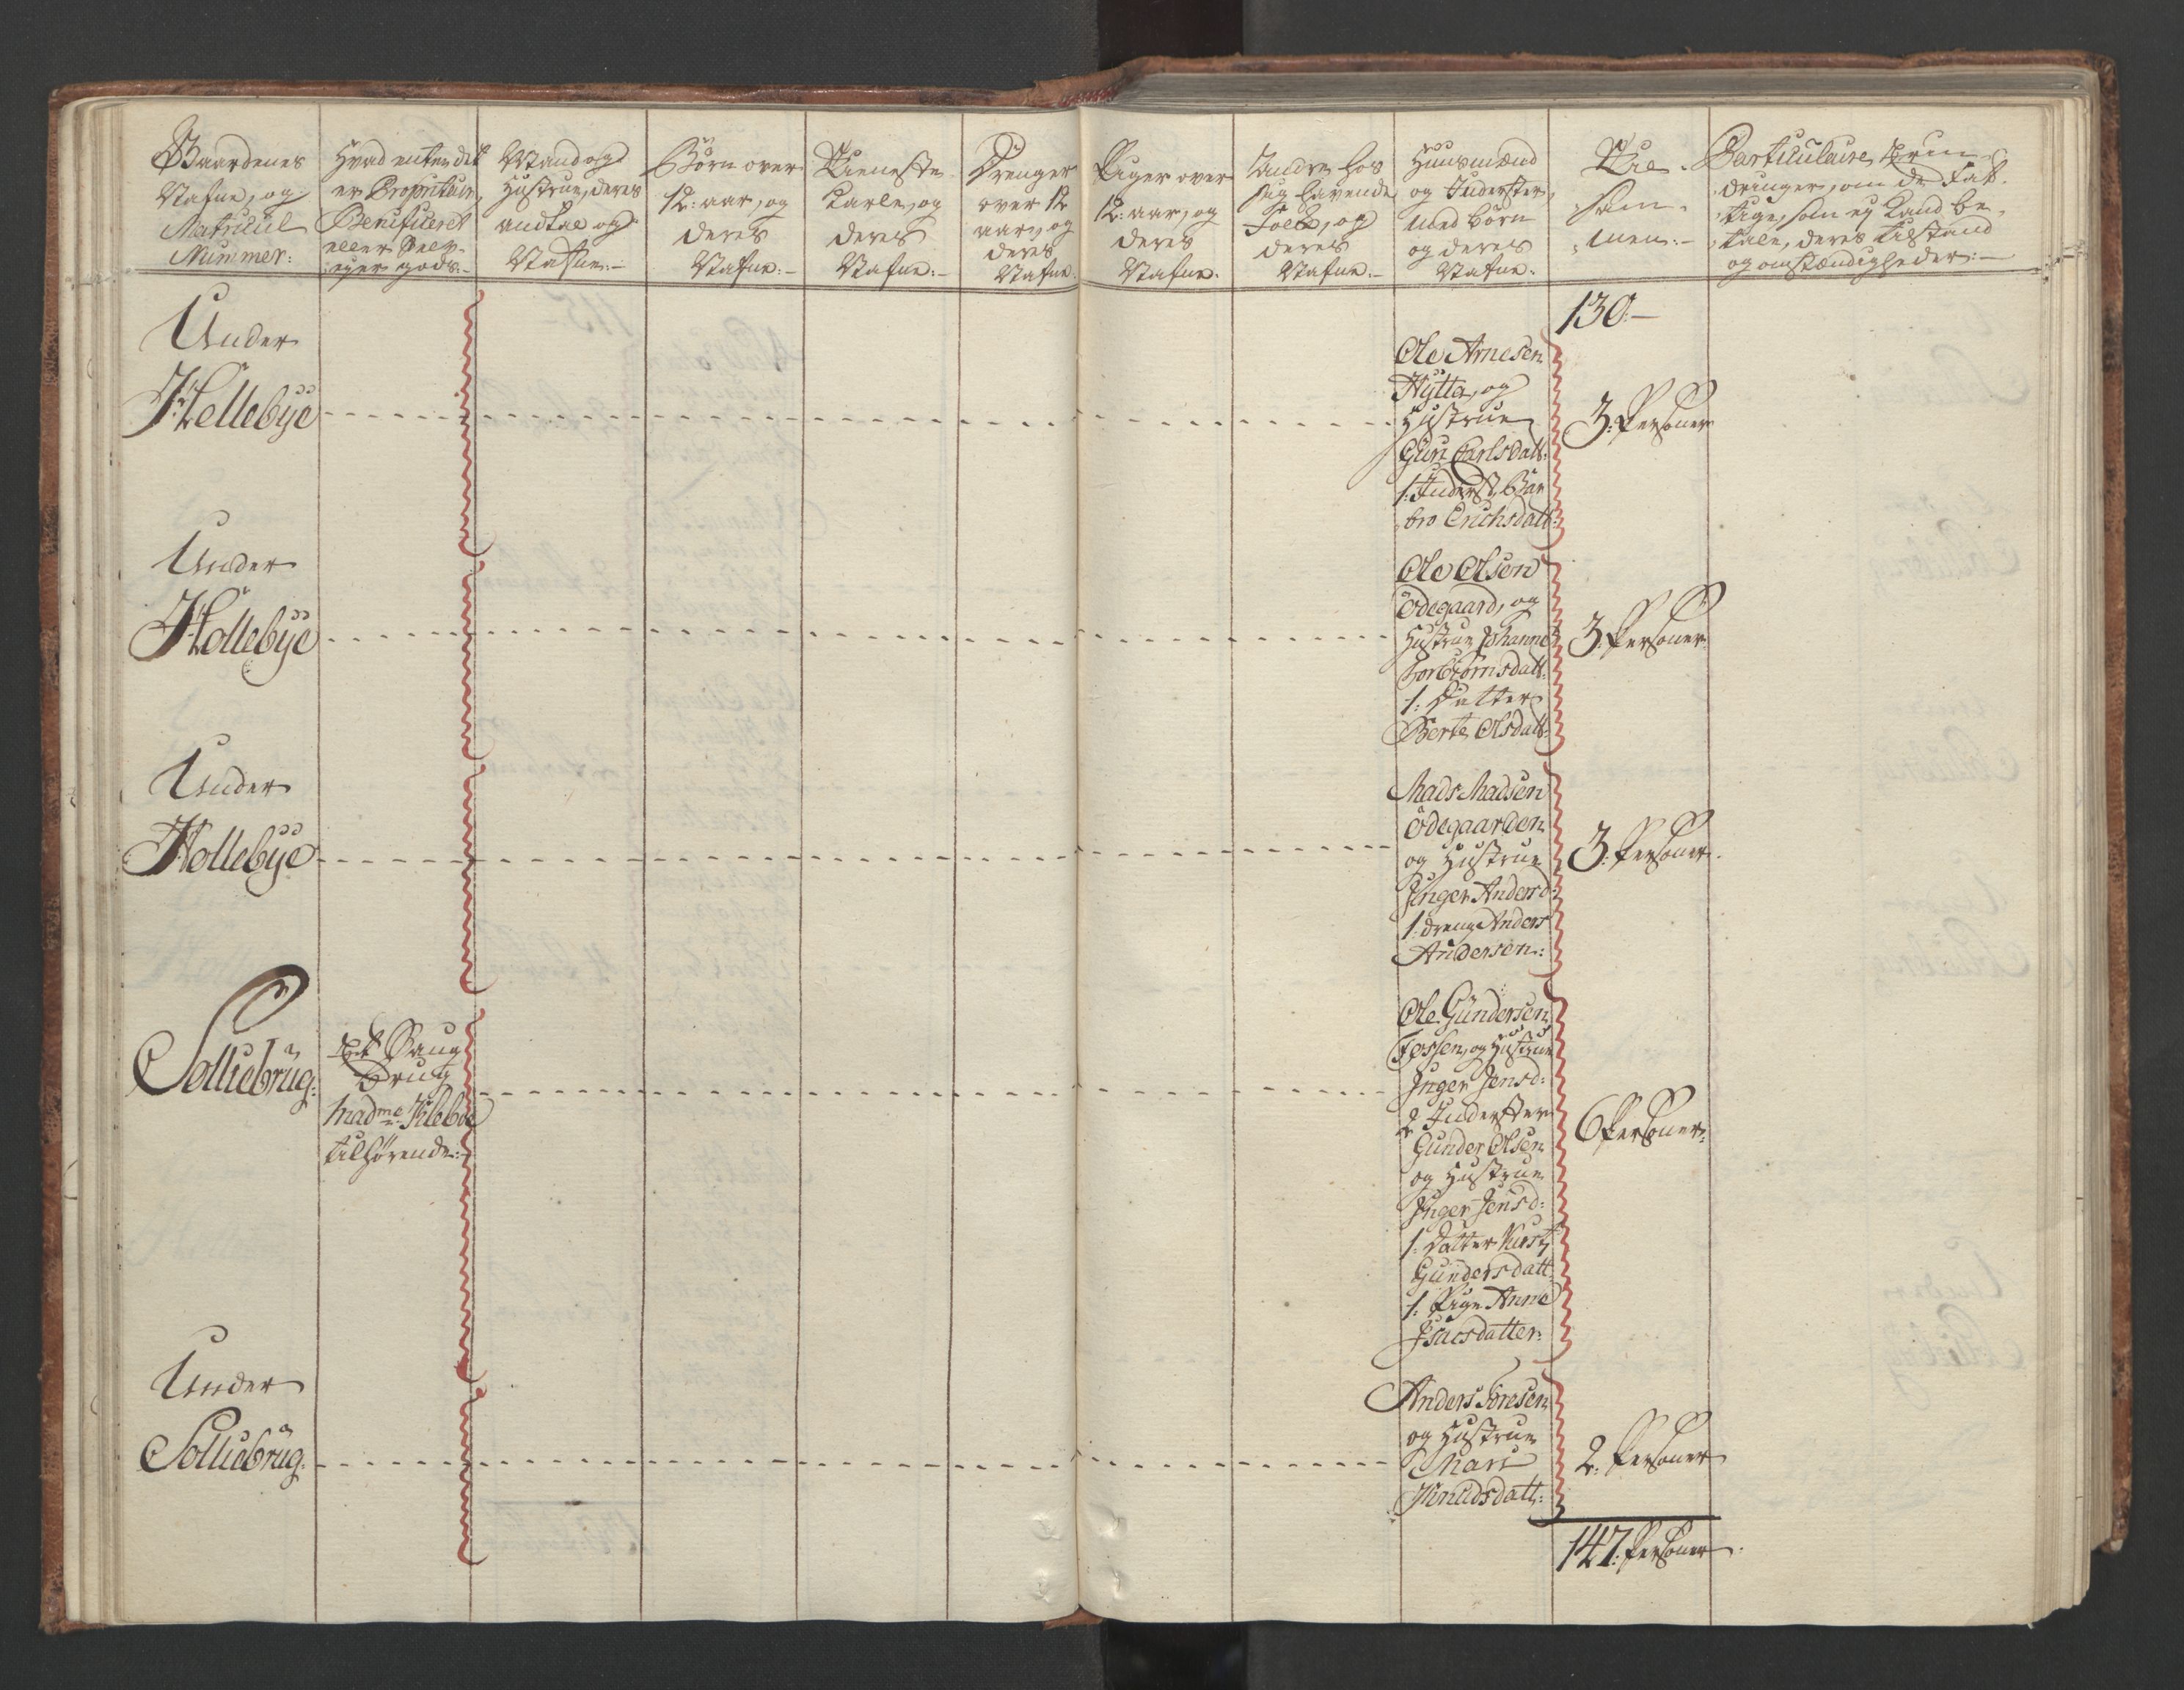 Gaardenes
Nafne, og
Matricul
Nummer:
Hvad enten det
er Propritair,
Benificeret
eller Selv-
eyer gods:-
Mand og
Hustrue, deres
andtal og
Nafne:-
Børn over
12: aar, og
deres
Nafne:-
Tieneste
Karle, og
deres
Nafne:-
Drenger
over 12
aar, og
deres
Nafne:
Piger over
12: aar, og
deres
Nafne:
Andre hos
sig havende
Folk, og
deres
Nafne:-
Huusmænd
og Inderster,
med børn
og deres
Nafne:
Til-
sam-
men:-
Particulaire Erin-
dringer, om de Fat-
tige, som ej kand be-
tale, deres tilstand
og omstændigheder:-
130:-
Under
Hellebye
Ole Arnesen
Hytta, og
Hustrue
Guri Carlsdatt:
1: Inderst, Bar
bro Erichsdatt:
3: Personer
Under
Hollebye
Ole Olsen
Ödegaard, og
Hustrue Johanne
Torbiörnsdatt:
1: Datter
Berte Olsdatt:
3: Personer:
Under
Hollebye
Mads Madsen
Ödegaarden
og Hustrue
Inger Andersd:
1: dreng Anders
Andersen:
3: Personer.
Solliebrug:
Et Saug
Brug
Mad:me Kileboe
tilhørende:-
Ole Gundersen
Fossen, og Hustrue
Inger Jensd:
2 Inderster
Gunder Olsen
og Hustrue
Inger Jensd:
1: Datter Kirst:
Gundersdatt:
1: Pige Anne
Isacsdatter:
6 Personer:
Under
Solliebrug:
Anders Toresen
og Hustrue
Mari
Knudsdatt:
2: Personer
147: Personer.